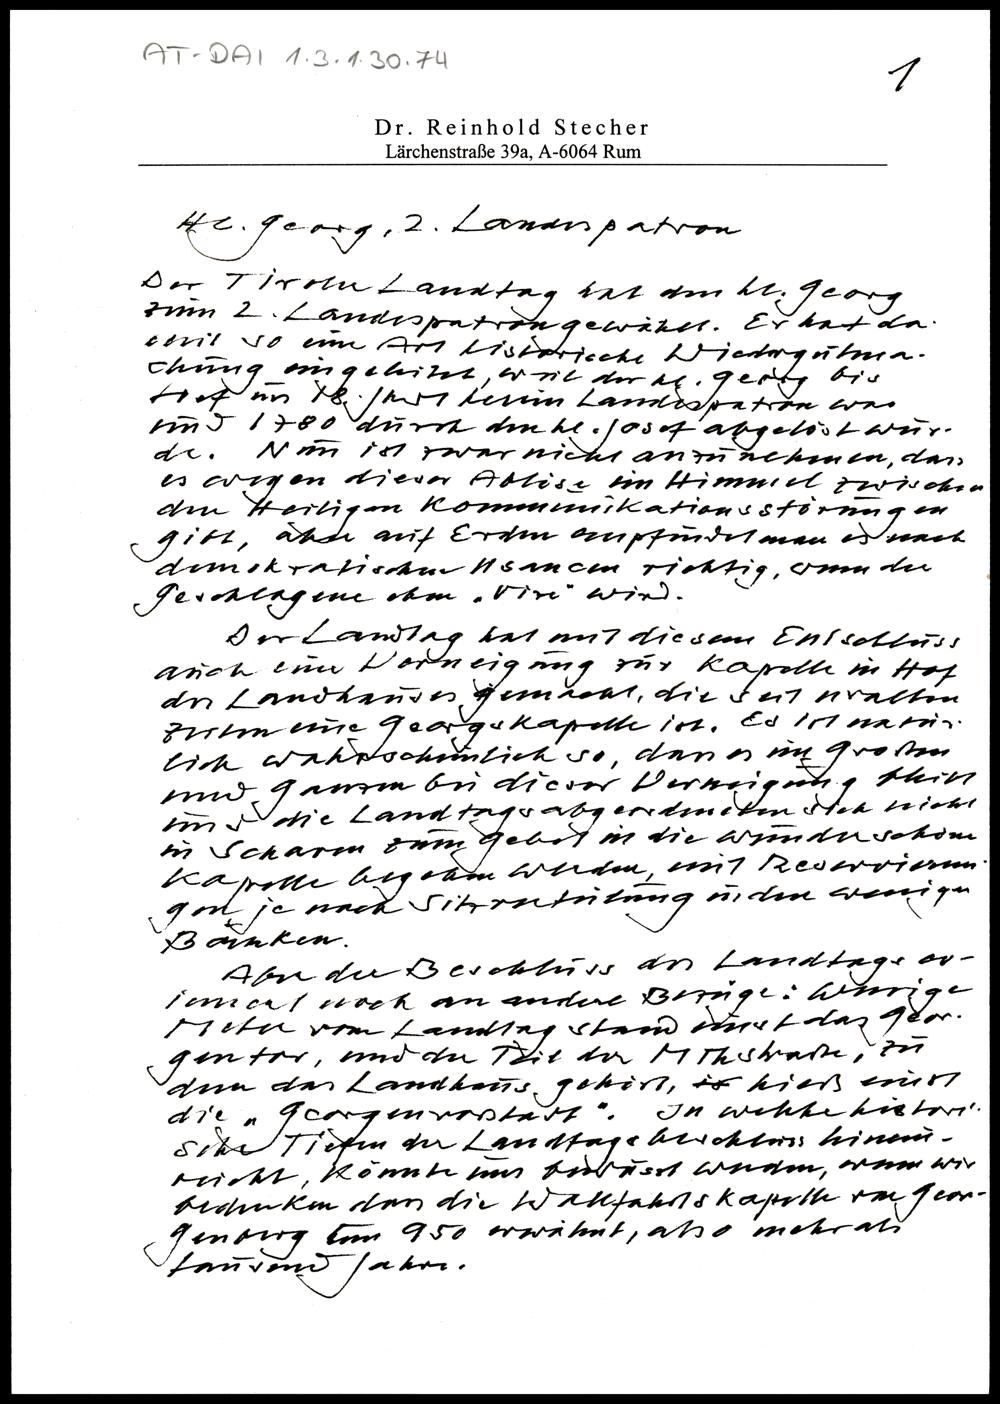 AT-DAI 1.3.1.30.74
1
Dr. Reinhold Stecher
Lärchenstraße 39a, A-6064 Rum
Hl. Georg, 2. Landespatron
Der Tiroler Landtag hat den hl. Georg
zum 2. Landespatron gewählt. Er hat da-
mit so eine Art historische Wiedergutma-
chung eingeleitet, weil der hl. Georg bis
tief ins 18. Jhdt herein Landespatron war
und 1780 durch den hl. Josef abgelöst wur-
de. Nun ist zwar nicht anzunehmen, dass
es wegen dieser Ablöse im Himmel zwischen
den Heiligen Kommunikationsstörungen
gibt, aber auf Erden empfindet man es nach
demokratischen Usancen richtig, wenn der
Geschlagene eben „Vize" wird.
Der Landtag hat mit diesem Entschluss
auch eine Verneigung zur Kapelle im Hof
des Landhauses gemacht, die seit uralten
Zeiten eine Georgskapelle ist. Es ist natür-
lich wahrscheinlich so, dass es im Großen
und Ganzen bei dieser Verneigung bleibt
und die Landtagsabgeordneten sich nicht
in Scharen zum Gebet in die wunderschöne
Kapelle begeben werden, mit Reservierun-
gen je nach Sitzverteilung in den wenigen
Bänken.
Aber der Beschluss des Landtags er-
innert noch an andere Bezüge: Wenige
Meter vom Landtag stand einst das Geor-
gentor, und der Teil der Mthstraße, zu
dem das Landhaus gehört, hieß einst
die „Georgenvorstadt". In welche histori-
sche Tiefen der Landtagsbeschluss hinein-
reicht, könnte uns bewusst werden, wenn wir
bedenken dass die Wallfahrtskapelle von Geor-
genberg um 950 erwähnt, also mehr als
tausend Jahre.